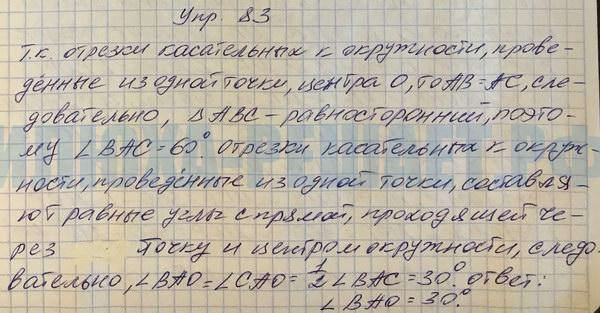 Упр. 83
т.к. отрезки касательных к окружности, прове-
дённые из одной точки, центра О, то AB = AC, сле-
довательно, Δ ABC - равносторонний, поэто-
му ∠ BAC = 60°. отрезки касательных к окруж-
ности, проведённые из одной точки, составля-
ют равные углы с прямой, проходящей че-
рез точку и центром окружности, следо-
вательно, ∠BAO = ∠CAO = 1/2 ∠BAC = 30°. ответ:
∠BAO = 30°.